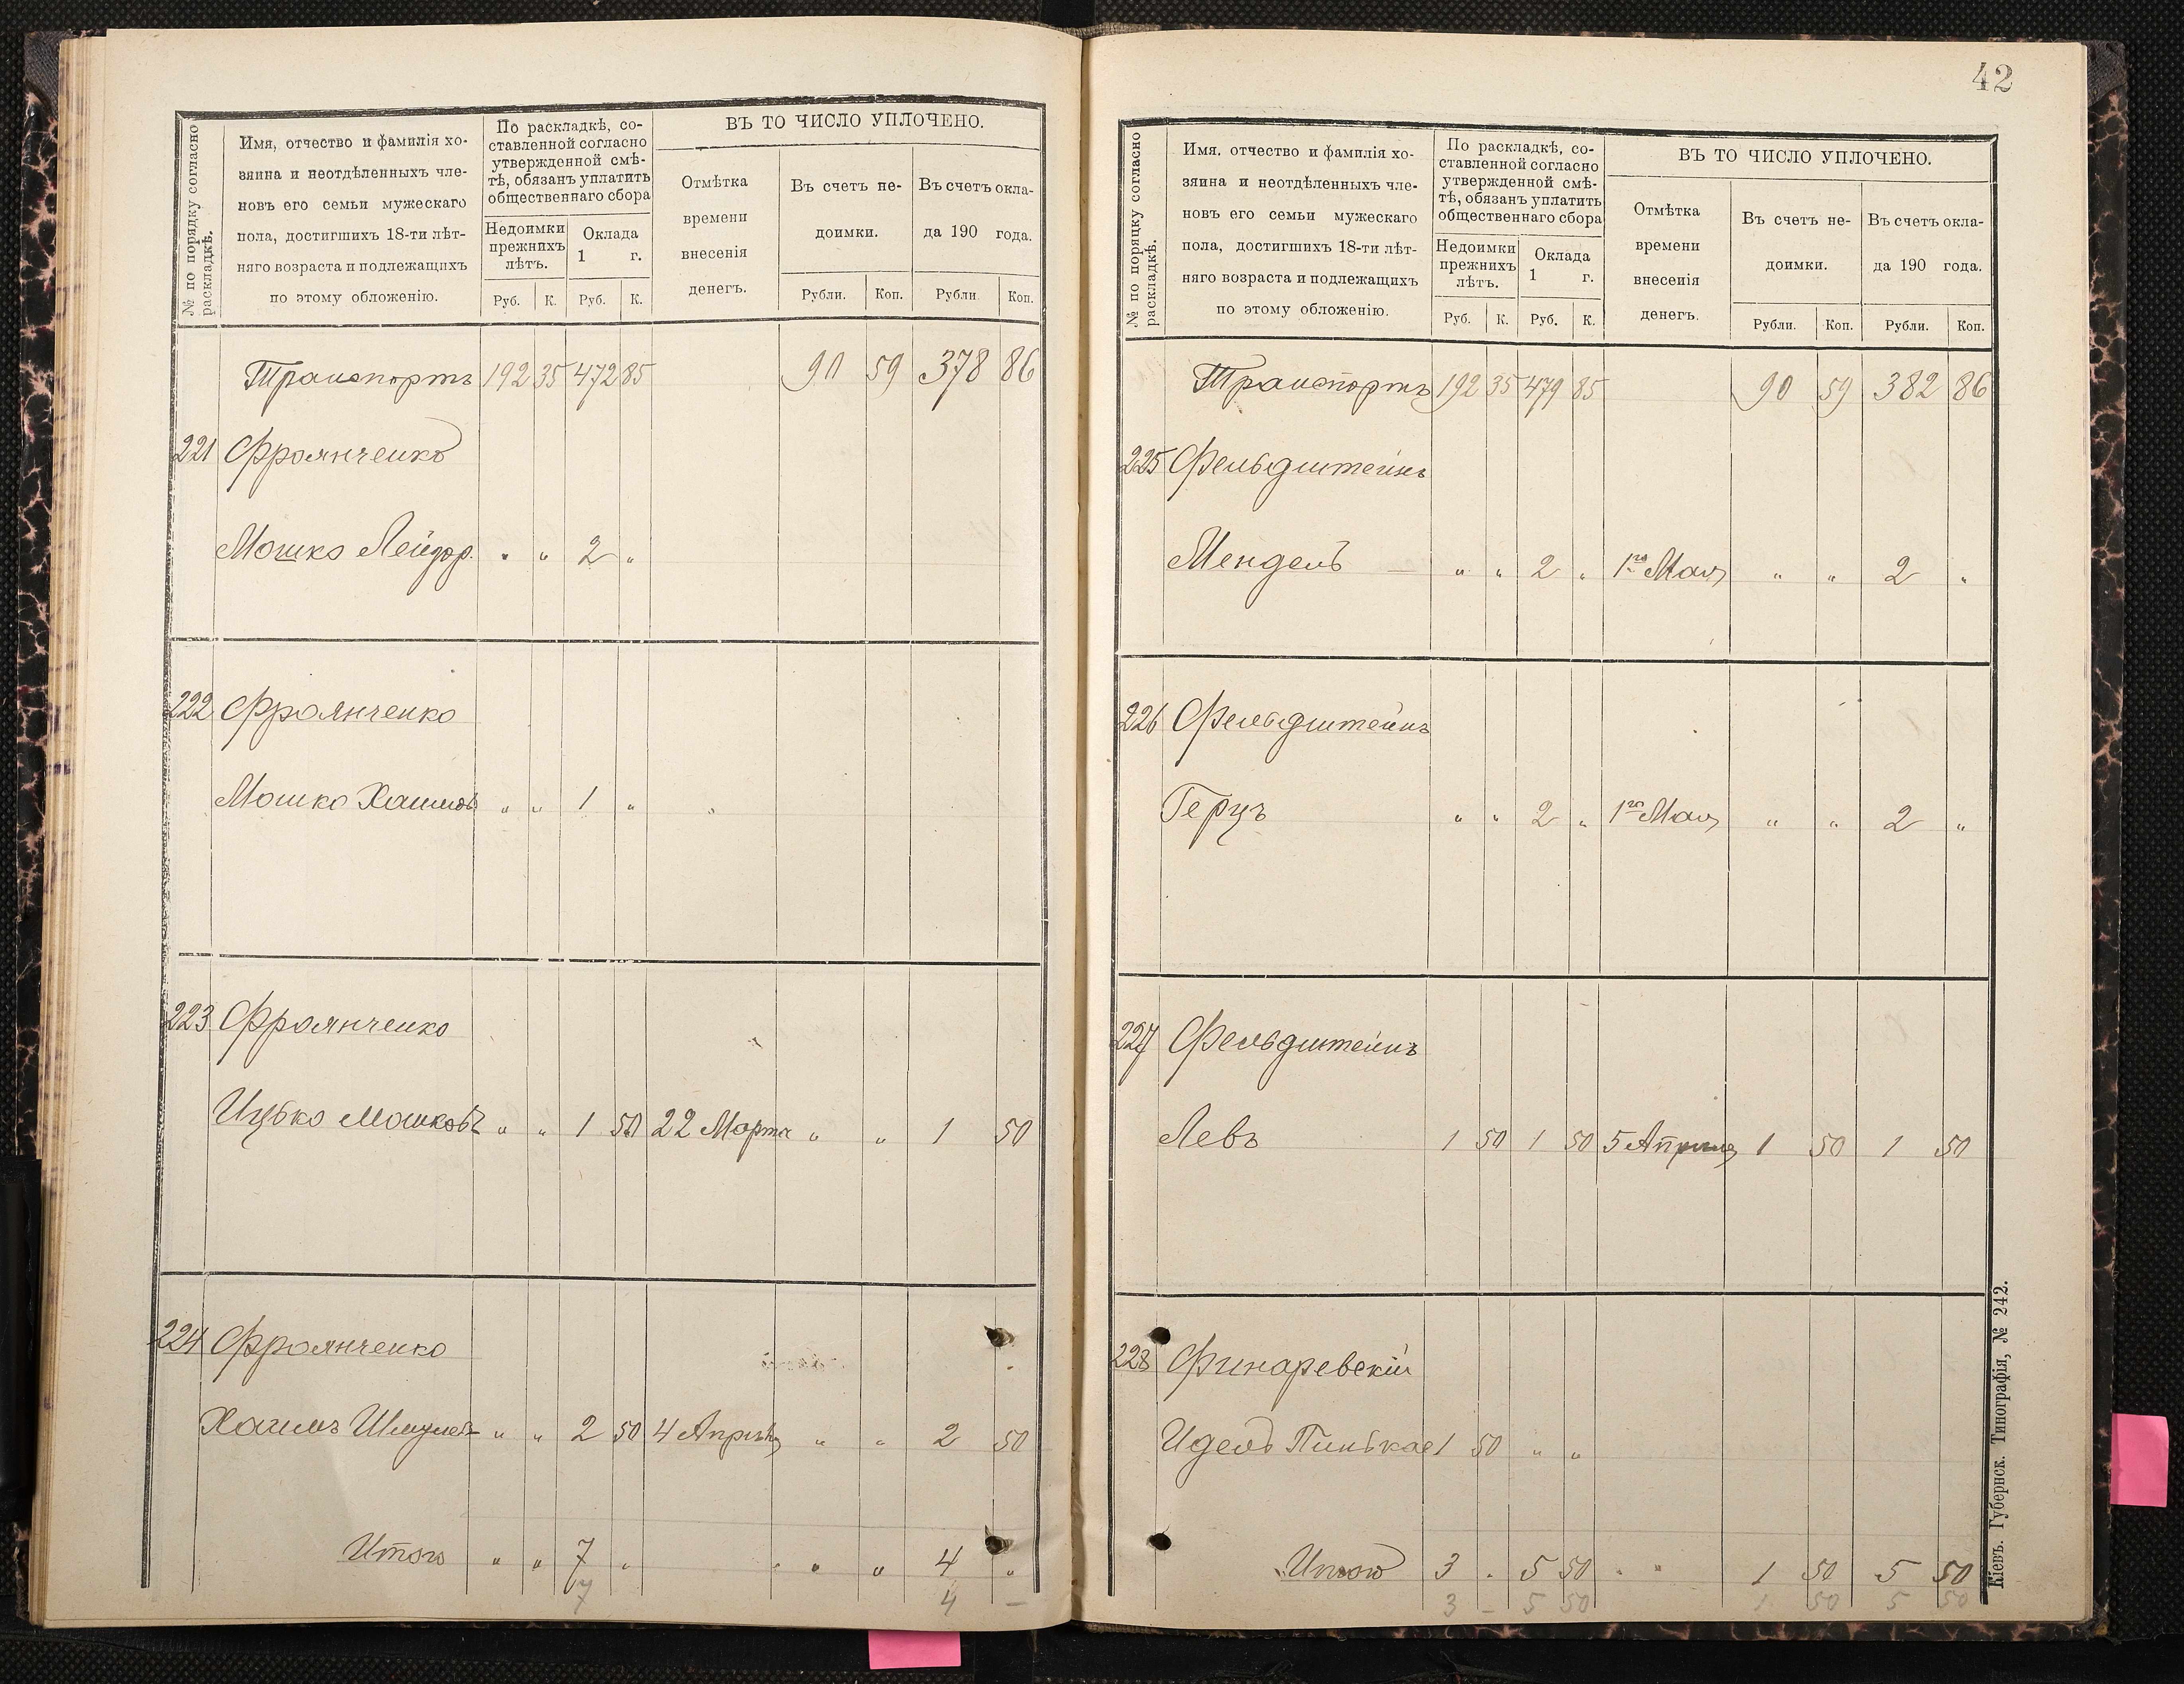 № по порядку согласно
раскладкѣ.
Имя, отчество и фамилія хо-
зяина и неотдѣленныхъ чле-
новъ его семьи мужескаго
пола, достигшихъ 18-ти лѣт-
няго возраста и подлежащихъ
по этому обложенію.
По раскладкѣ, со-
ставленной согласно
утвержденной смѣ-
тѣ, обязанъ уплатить
общественнаго сбора
Недоимки
прежнихъ
лѣтъ.
Оклада
1 г.
Руб. К. Руб. К.
ВЪ ТО ЧИСЛО УПЛОЧЕНО.
Отмѣтка
времени
внесенія
денегъ.
Въ счетъ не-
доимки.
Рубли. Коп.
Въ счетъ окла-
да 190 года.
Рубли Коп.
Транспортъ 192 35 472 85 90 59 378 86
221 Фроянченко
Мошко Лейзор. " " 2 "
222 Фроянченко
Мошко Хаимов. " " 1 " "
223 Фроянченко
Ицько Мошковъ " " 1 50 22 Марта " " 1 50
224 Фроянченко
Хаимъ Шмулев. " " 2 50 4 Апрѣля " " 2 50
Итого " " 7 " " " 4 "
7 4 –
42
№ по поряцку согласно
раскладкѣ.
Имя. отчество и фамилія хо-
зяина и неотдѣленныхъ чле-
новъ его семьи мужескаго
пола, достигшихъ 18-ти лѣт-
няго возраста и подлежащихъ
по этому обложенію.
По раскладкѣ, со-
ставленной согласно
утвержденной смѣ-
тѣ, обязанъ уплатить
общественнаго сбора
Недоимки
прежнихъ
лѣтъ.
Оклада
1 г.
Руб. К. Руб. К.
ВЪ ТО ЧИСЛО УПЛОЧЕНО.
Отмѣтка
времени
внесенія
денегъ.
Въ счетъ не-
доимки.
Рубли. Коп.
Въ счетъ окла-
да 190 года.
Рубли. Коп.
Транспортъ 192 35 479 85 90 59 382 86
225 Фельдштейнъ
Мендель — " " 2 " 1го Мая " " 2 "
226 Фельдштейнъ
Герцъ " " 2 " 1го Мая " " 2 "
227 Фельдштейнъ
Левъ 1 50 1 50 5 Апрѣля 1 50 1 50
228 Финаревскій
Идель Пинькас 1 50 " "
Итого 3 " 5 50 " " 1 50 5 50
3 – 5 50 1 50 5 50
Кіевъ. Губернск. Типографія, № 242.